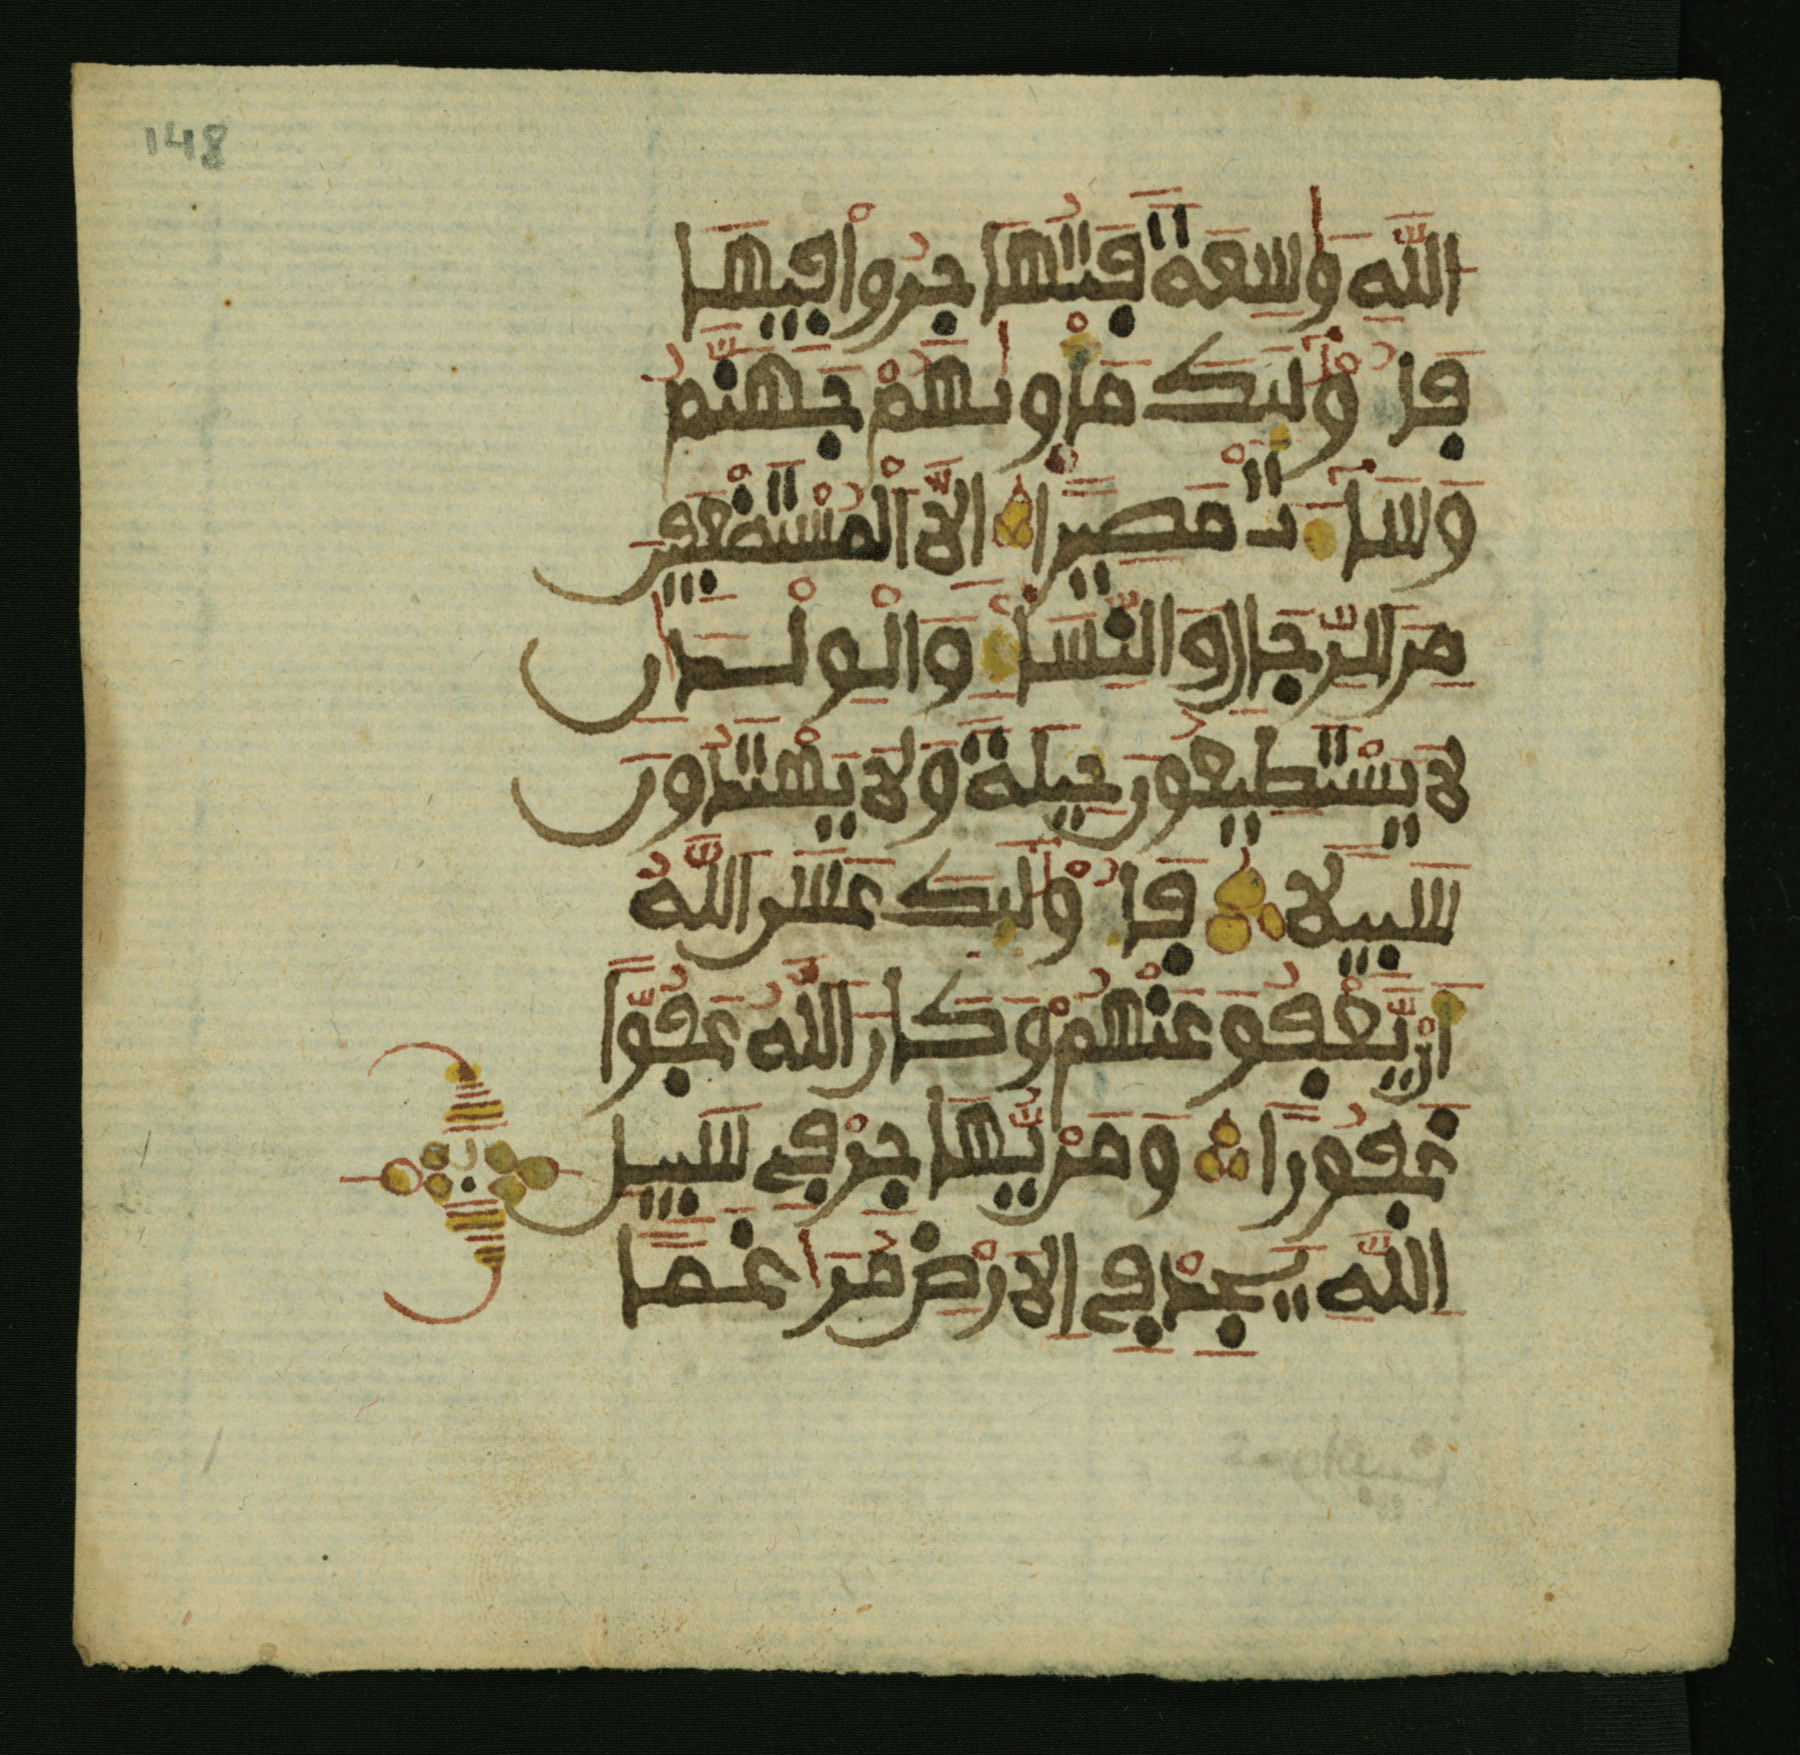 148
اللَّهِ وَٰسِعَةً فَتُهَاجِرُوا فِيهَا
فَأُوْلَٰئِكَ مَأْوَىٰهُمْ جَهَنَّمُ
وَسَاءَتْ مَصِيرًا إِلَّا الْمُسْتَضْعَفِينَ
مِنَ الرِّجَالِ وَالنِّسَاءِ وَالْوِلْدَٰنِ
لَا يَسْتَطِيعُونَ حِيلَةً وَلَا يَهْتَدُونَ
سَبِيلًا فَأُوْلَٰئِكَ عَسَى اللَّهُ
أَنْ يَّعْفُوَ عَنْهُمْ وَكَانَ اللَّهُ عَفُوًّا
غَفُورًا وَمَنْ يُّهَاجِرْ فِي سَبِيلِ
اللَّهِ يَجِدْ فِي الْأَرْضِ مُرَٰغَمًا